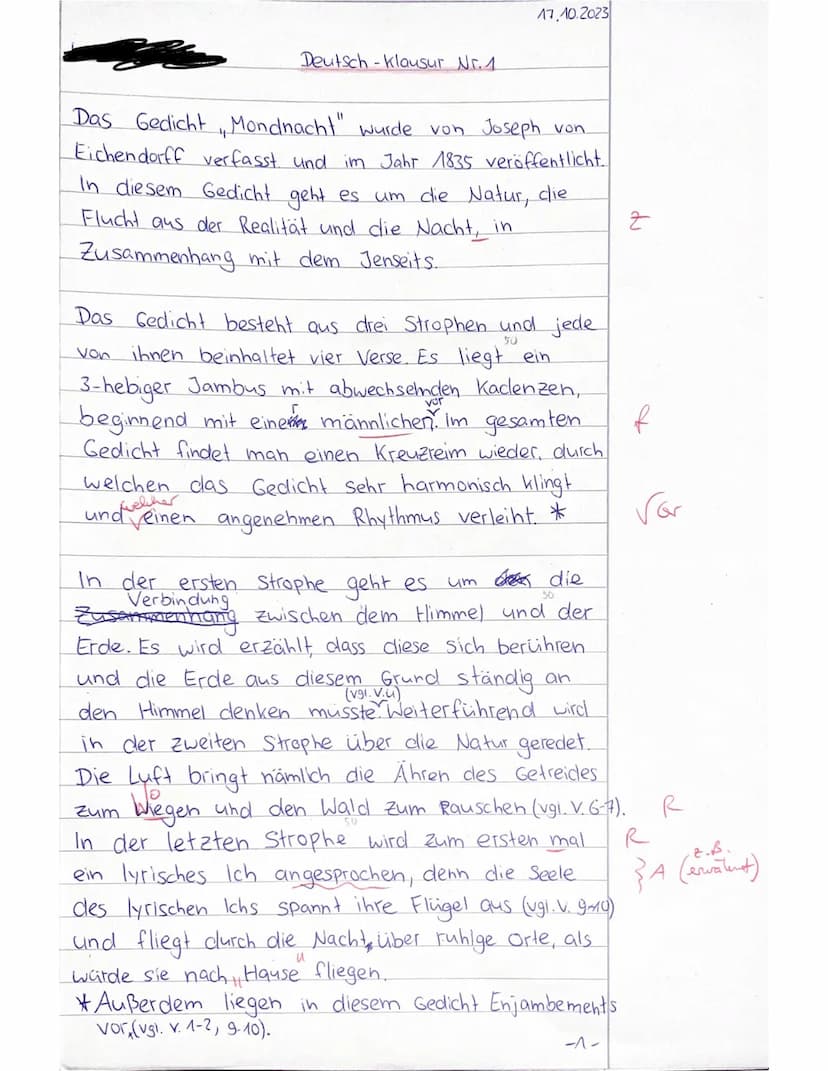 17.10.2023
Deutsch-Klausur Nr.1
Das Gedicht „Mondnacht" wurde von Joseph von
Eichendorff verfasst und im Jahr 1835 veröffentlicht.
In diesem Gedicht geht es um die Natur, die
Flucht aus der Realität und die Nacht, in
Z
Zusammenhang mit dem Jenseits.
Das Gedicht besteht aus drei Strophen und jede
50
von ihnen beinhaltet vier Verse. Es liegt ein
3-hebiger Jambus mit abwechselnden Kadenzen,
vor
beginnend mit einer männlichen. Im gesamten
f
Gedicht findet man einen Kreuzreim wieder, durch
welchen das Gedicht sehr harmonisch klingt
welcher
und einen angenehmen Rhythmus verleiht. *
√ Gr
In der ersten Strophe geht es um die
Verbindung
Zusammenhang zwischen dem Himmel und der
Erde. Es wird erzählt, dass diese sich berühren
und die Erde aus diesem Grund ständig an
(vgl. V.4)
den Himmel denken müsste. Weiterführend wird
in der zweiten Strophe über die Natur geredet.
Die Luft bringt nämlich die Ähren des Getreides
zum Wiegen und den Wald zum Rauschen (vgl. V. 6-7).
R
50
In der letzten Strophe wird zum ersten mal
R
ein lyrisches Ich angesprochen, denn die Seele
} A (z.B. erwähnt)
des lyrischen Ichs spannt ihre Flügel aus (vgl. V. 9-10)
und fliegt durch die Nacht, über ruhige Orte, als
würde sie nach „Hause" fliegen.
* Außerdem liegen in diesem Gedicht Enjambements
vor, (vgl. V. 1-2, 9-10).
-1-